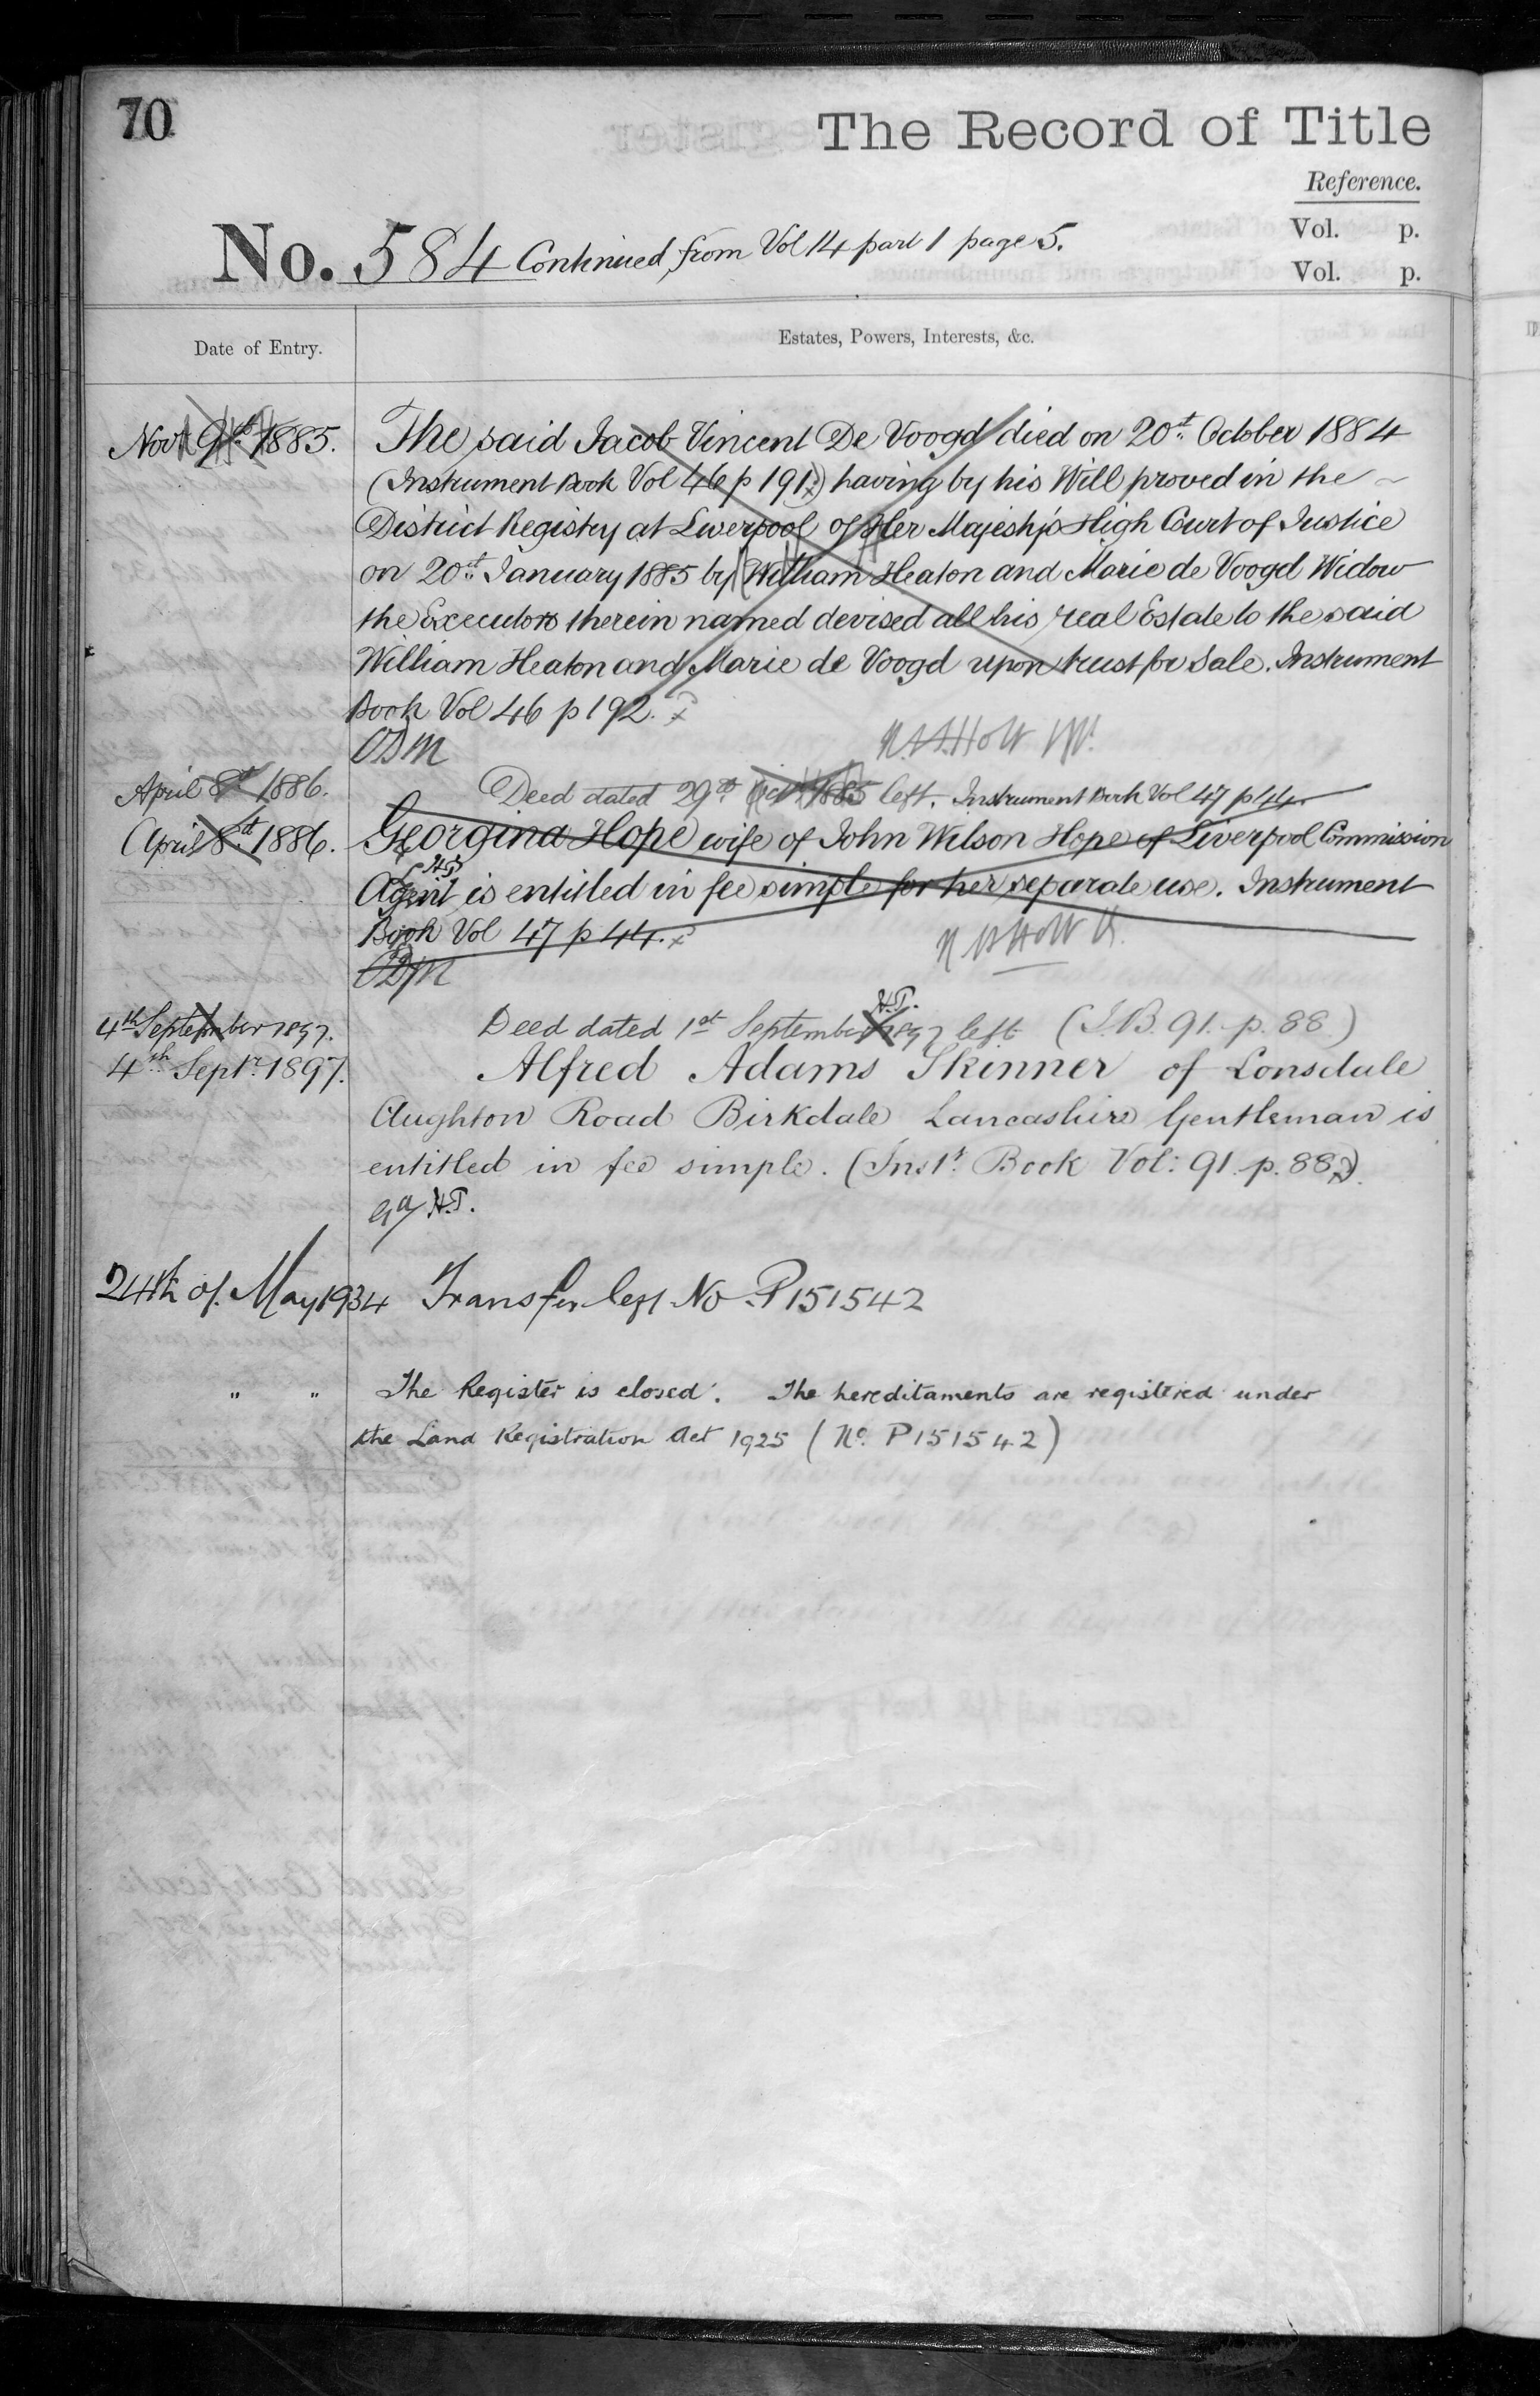 70
The Record of Title
Reference.
Vol. p.
Vol. p.
No. 584 Continued from Vol 14 part 1 page 5.
Date of Entry.
Estates, Powers, Interests, &c.
Novr 9th 1885. The said Jacob Vincent De Voogd died on 20th October 1884
(Instrument Book Vol 46 p 191) having by his Will proved in the
District Registry at Liverpool of Her Majesty's High Court of Justice
on 20th January 1885 by William Heaton and Marie de Voogd Widow
the Executors therein named devised all his real Estate to the said
William Heaton and Marie de Voogd upon trust for Sale. Instrument
Book Vol 46 p 192.
ODM
April 8th 1886. Deed dated 29th Octr 1885 left. Instrument Book Vol 47 p 44.
April 8th 1886. Georgina Hope wife of John Wilson Hope of Liverpool Commission
Agent is entitled in fee simple for her separate use. Instrument
H.T.
Book Vol 47 p 44.
ODM
H.T.
4th September 1897. Deed dated 1st September 1897 left (I.B. 91. p. 88.)
4th Septr. 1897. Alfred Adams Skinner of Lonsdale
Aughton Road Birkdale Lancashire Gentleman is
entitled in fee simple. (Instr. Book Vol: 91. p. 88).
H.T.
24th of May 1934 Transfer left No P151542
" " The Register is closed. The hereditaments are registered under
the Land Registration Act 1925 (No. P151542)